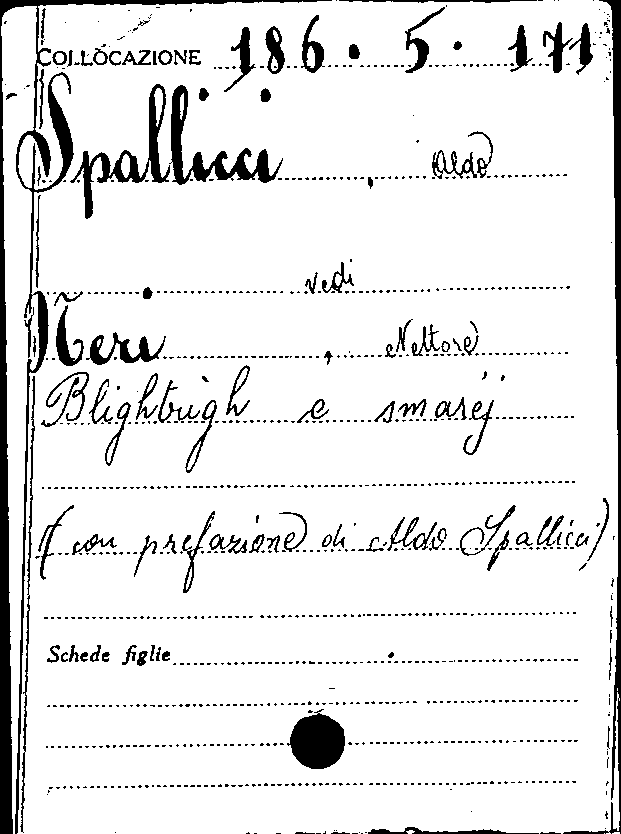 COLLOCAZIONE 186. 5. 171
Spallicci, Aldo
vedi
Neri, Nettore
Blighbrìgh e smaréj
(con prefazione di Aldo Spallicci)
Schede figlie